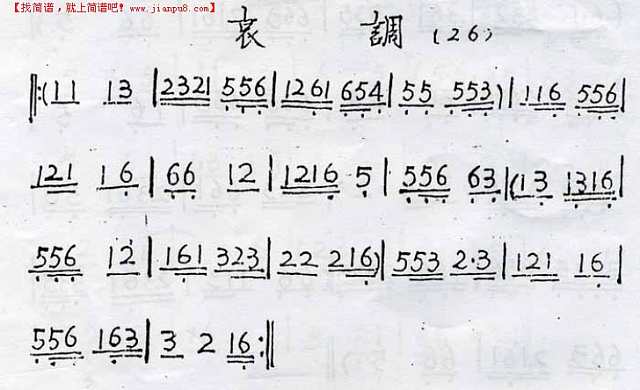 【找简谱，就上简谱吧！www.jianpu8.com】
哀 調 (26)
‖:(11 13 | 2321 556 | 1261 654 | 55 553) | 116 556 |
121 16 | 66 12 | 1216 5 | 556 63 | (13 1316 |
556 12 | 161 323 | 22 216) | 553 2·3 | 121 16 |
556 163 | 3 2 16 :‖